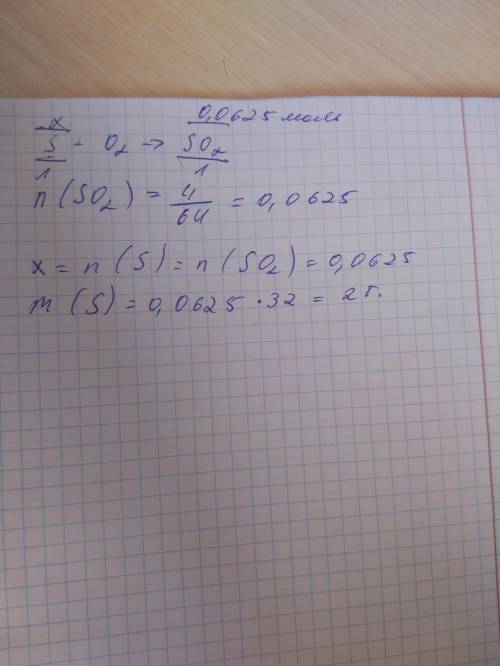 x 0,0625 моль
S - O2 → SO2
1 1
n (SO2) = 4/64 = 0,0625
x = n (S) = n (SO2) = 0,0625
m (S) = 0,0625 · 32 = 2г.